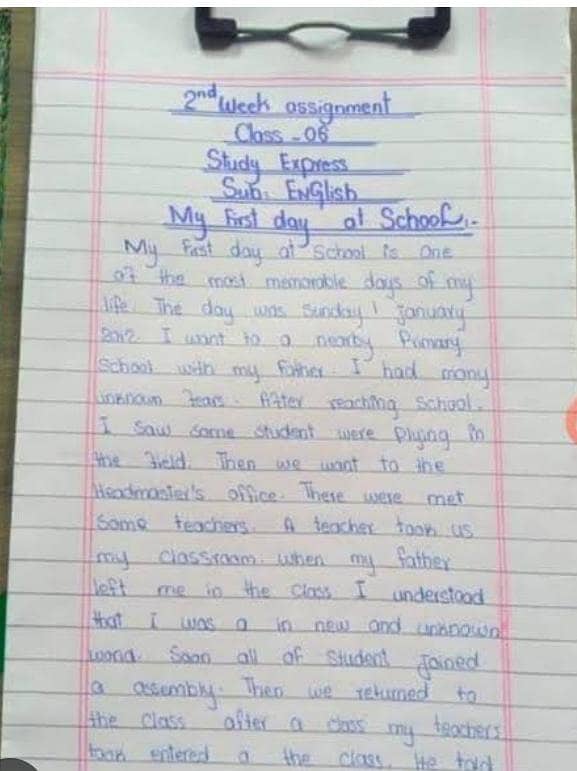 2nd Week assignment
Class - 06
Study Express
Sub: ENGlish
My First day at School:-
My First day at School is One
of the most memorable days of my
life. The day was Sunday 1 January
2012 I want to a nearby Primary
School with my Father. I had many
unknown Fears. After reaching School.
I Saw some student were Plying in
the Field. Then we want to the
Headmaster's office. There were met
Some teachers. A teacher took us
my classroom. when my father
left me in the class I understood
that i was a in new and unknown
world. Soon all of Student Joined
a assembly. Then we returned to
the class after a class my teachers
took entered a the class. He told